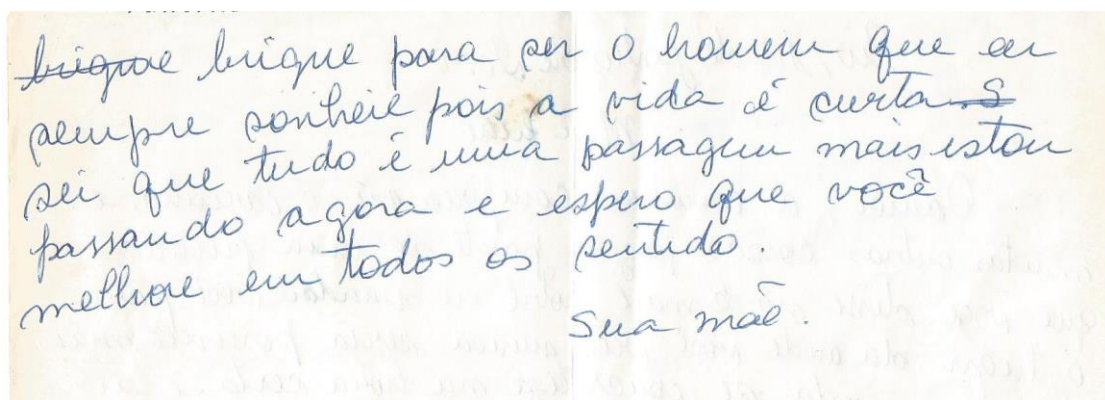 brigue para ser o homem que eu
sempre sonheie pois a vida é curta
sei que tudo é uma passagem mais estou
passando agora e espero que você
melhore em todos os sentido.
Sua mãe.